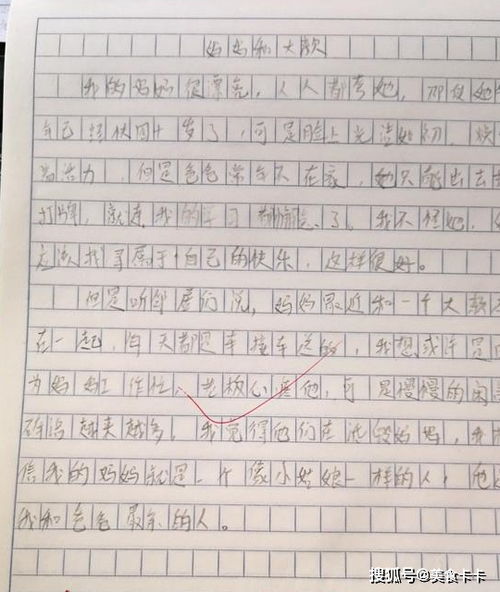 妈妈和大款
我的妈妈很漂亮，人人都夸她，那仅她
年已经快四十岁了，可是脸上光洁如初，焕
活力，但是爸爸常年不在家，她只能出去
打牌，就连我的学习都 了。我不怪她，
应该找寻属于自己的快乐，这样很好。
但是听邻居们说，妈妈最近和一个大款
在一起，每天都是车接车送的，我想或许是
为妈妈工作忙，老板心疼他，可是慢慢的闲
碎语越来越多。我觉得他们在诋毁妈妈，我
信我的妈妈就是一个像小姑娘一样的人，他
我和爸爸最亲的人。
搜狐号@美食卡卡